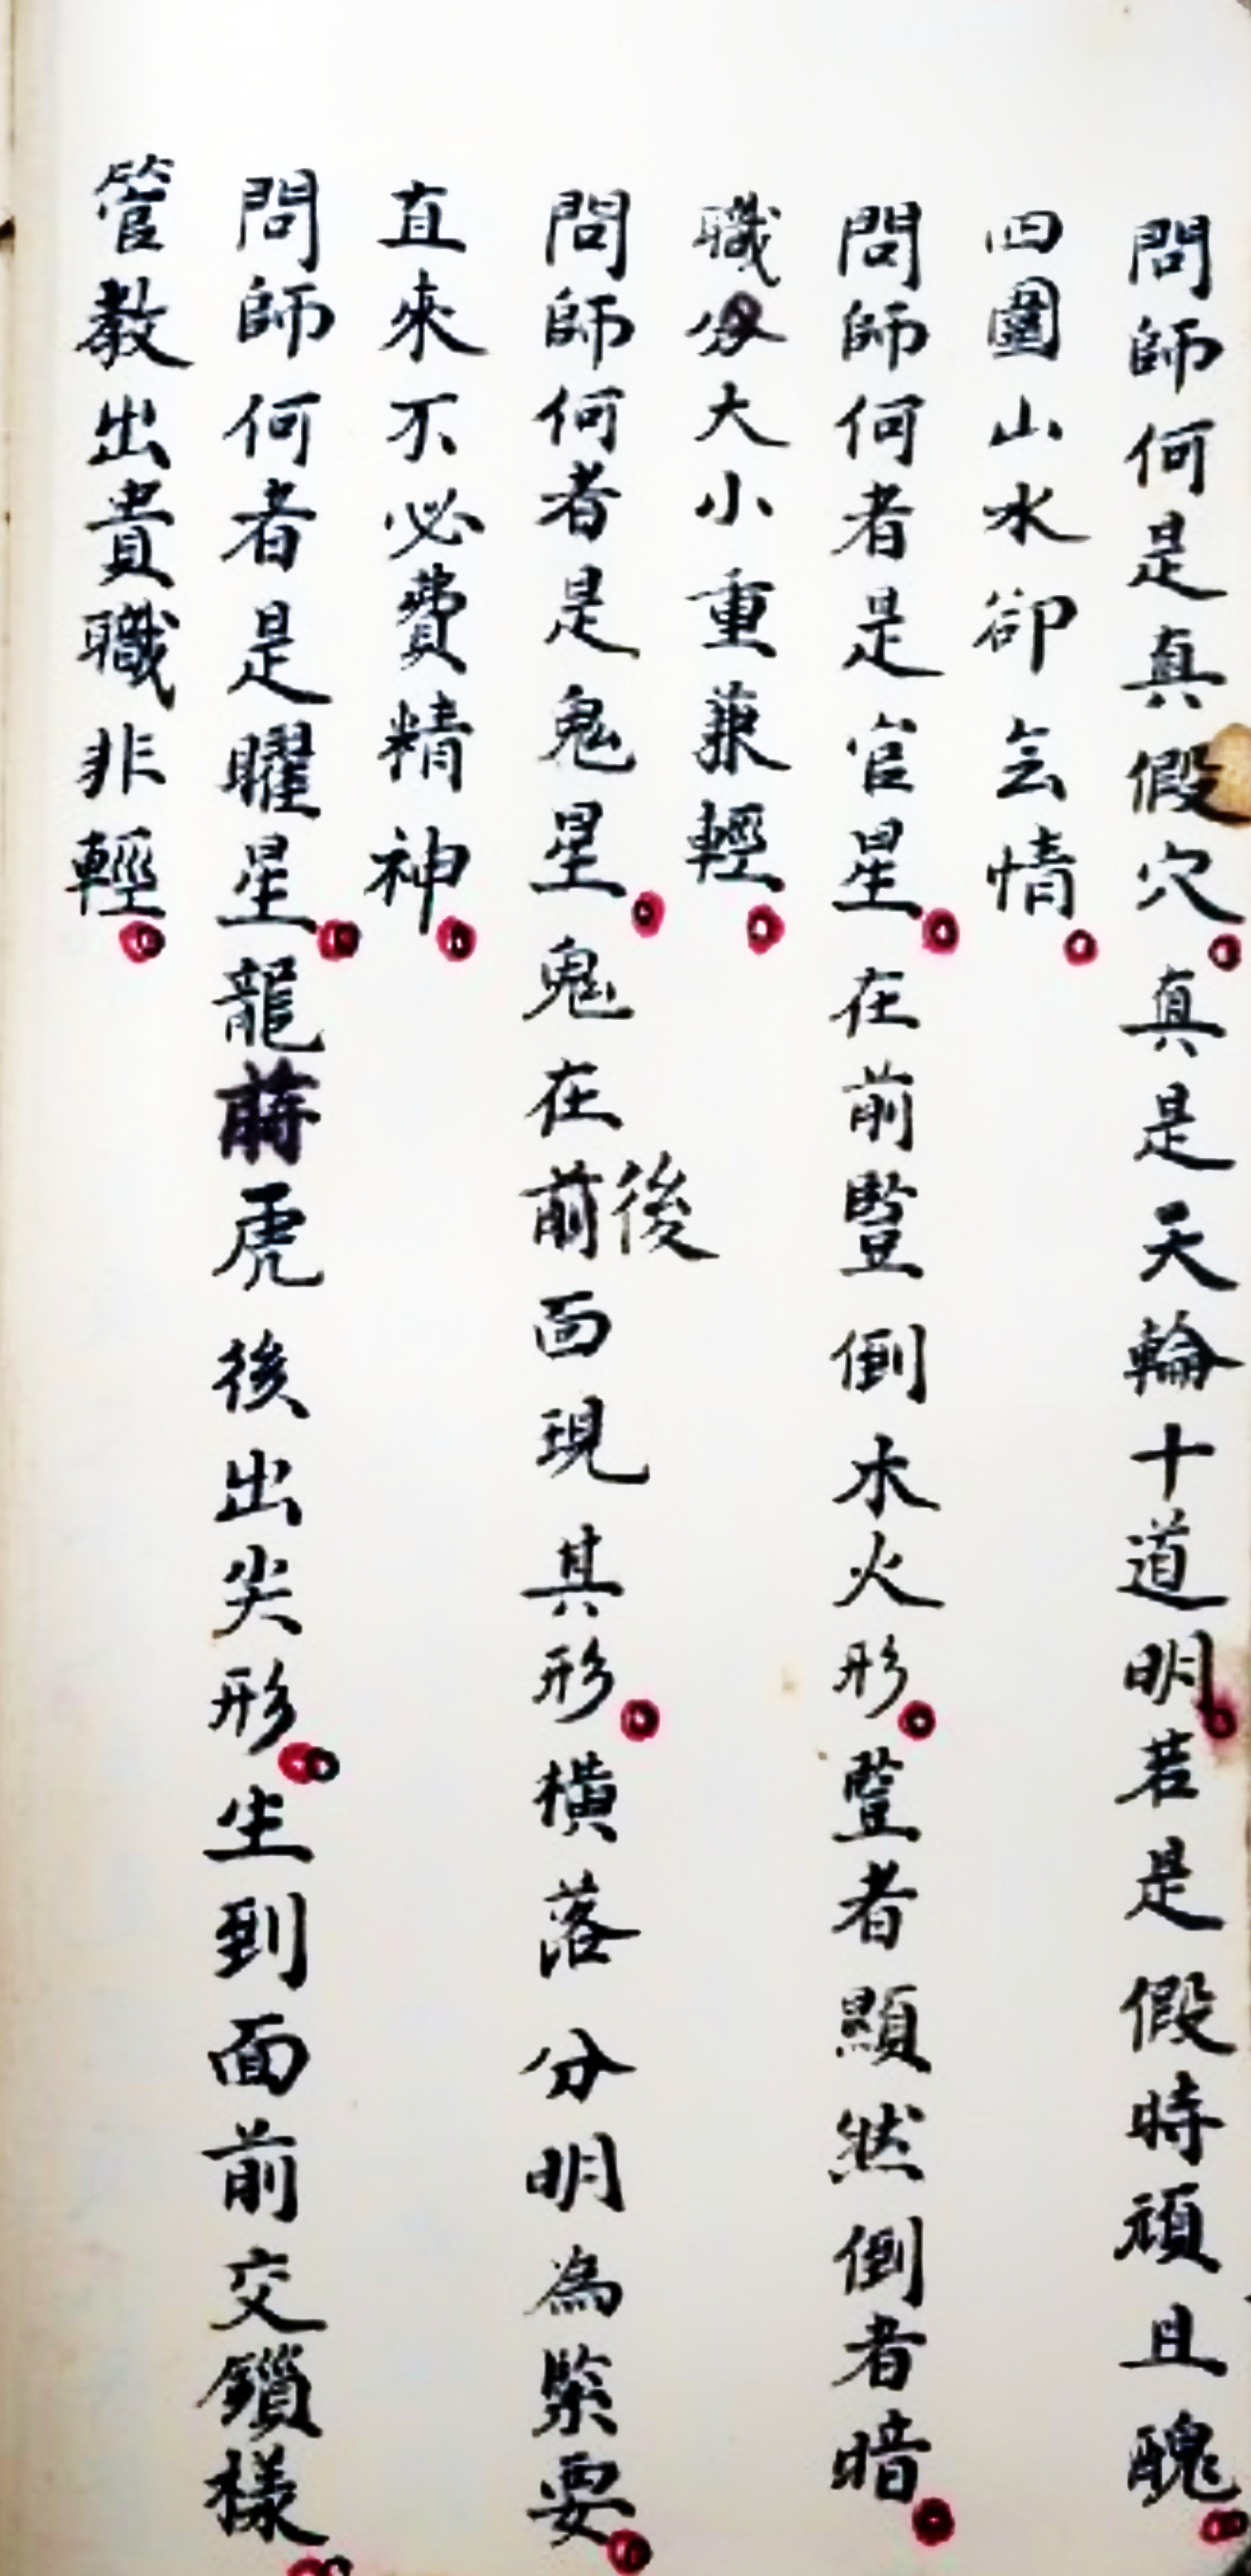 問師何是真假穴。真是天輪十道明。若是假時頑且醜。
四圍山水卻無情。
問師何者是官星。在前豎倒木火形。豎者顯然倒者暗。
職分大小重兼輕。
問師何者是鬼星。鬼在前後面現其形。橫落分明為緊要。
直來不必費精神。
問師何者是曜星。龍前虎後出尖形。生到面前交鎖樣。
管教出貴職非輕。